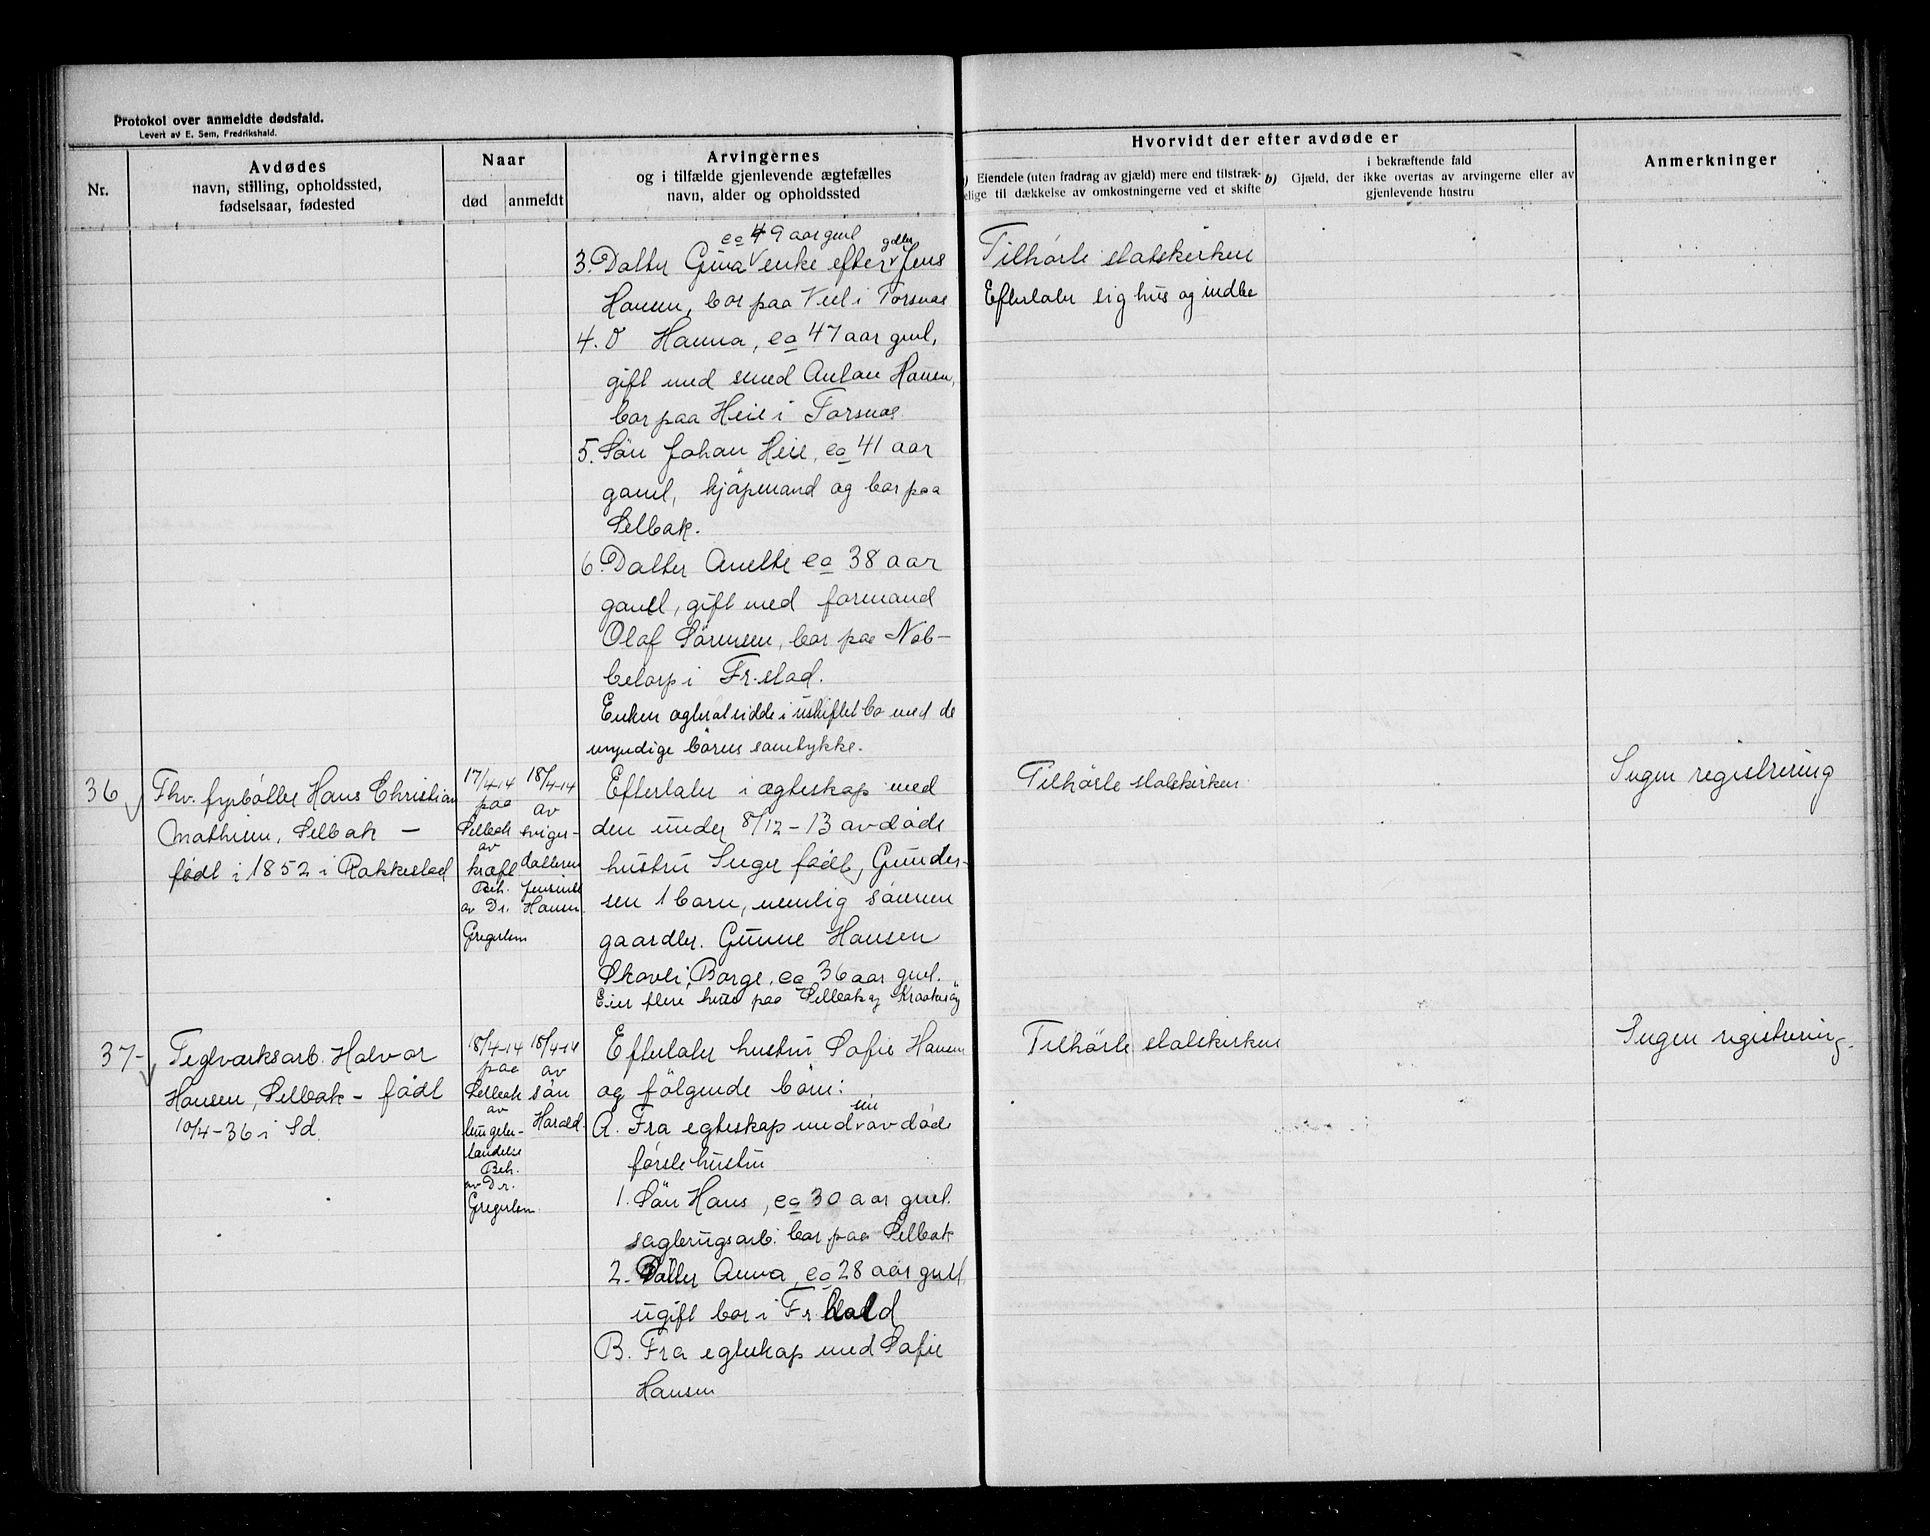 Protokol over anmeldte dødsfald.
Levert av E. Sem, Fredrikshald.
Nr.
Avdødes
navn, stilling, opholdssted,
fødselsaar, fødested
Naar
død
anmeldt
Arvingernes
og i tilfælde gjenlevende ægtefælles
navn, alder og opholdssted
Hvorvidt der efter avdøde er
Eiendele (uten fradrag av gjæld) mere end tilstræk-
elige til dækkelse av omkostningerne ved et skifte
b) Gjæld, der
i bekræftende fald
ikke overtas av arvingerne eller av
gjenlevende hustru
Anmerkninger
ca 49 aar gml
3. Datter Gina enke efter Jens
Hansen, bor paa Veel i Torsnæs
4. D Hanna, ca 47 aar gml,
gift med smed Anton Hansen,
bor paa Heie i Torsnæs
5. Søn Johan Heie, ca 41 aar
gaml, kjøpmand og bor paa
Selbak.
6. Datter Anette ca 38 aar
gaml, gift med formand
Olaf Sørensen, bor paa Nab-
betorp i Fr.stad.
Enken agter at sidde i uskiftet bo med de
umyndige børns samtykke.
Tilhørte statskirken
Efterlater sig hus og indbo
36
Fhv. fyrbøter Hans Christian
Mathisen, Selbak –
født i 1852 i Rakkestad
17/4-14
paa
Selbak
av
kræft
Beh.
av Dr.
Gregersen
18/4-14
av
sviger-
datteren
Jensine
Hansen
Efterlater i ægteskap med
den under 8/12-13 avdøde
hustru Inger født Gunder-
sen 1 barn, nemlig sønnen
gaardbr. Gunne Hansen
Skovli, Borge, ca 36 aar gml.
Eier flere huse paa Selbak og Kraakerøy
Tilhørte statskirken
Ingen registrering
37
Teglværksarb. Halvor
Hansen, Selbak – født
10/4-36 i Sd.
18/4-14
paa
Selbak
av
lungebe-
tændelse
Beh.
av Dr.
Gregersen
18/4-14
av
søn
Harald
Efterlater hustru Sofie Hansen
og følgende børn:
A. Fra egteskap med sin avdøde
første hustru
1. Søn Hans, ca 30 aar gml.
sagbrugsarb. bor paa Selbak
2. Datter Anna, ca 28 aar gml
ugift bor i Fr.hald
B. Fra egteskap med Sofie
Hansen
Tilhørte statskirken
Ingen registrering.